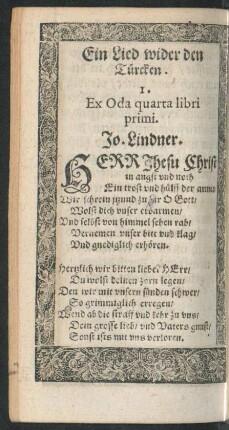 Ein Lied wider den
Türcken.
1.
Ex Oda quarta libri
primi.
Jo. Lindner.
HERR Jhesu Christ
in angst und noth
Ein trost und hülff der armn
Wir schrein jzund zu dir O Gott/
Wolst dich unser erbarmen/
Und selbst von himmel sehen rab/
Vernemen unser bitt und klag/
Und gnediglich erhören.
Hertzlich wir bitten lieber HErr/
Du wolst deinen zorn legen/
Den wir mit unsern sünden schwer/
So grimmiglich erregen/
Wend ab die straff und kehr zu uns/
Dein grosse lieb/ und Vaters gunst/
Sonst ists mit uns verloren.